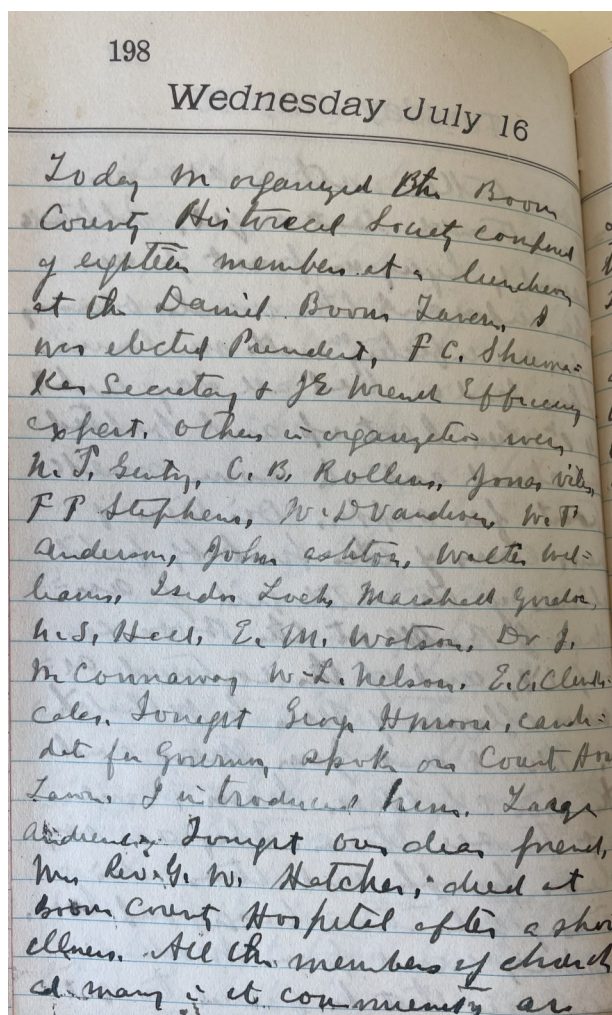 198
Wednesday July 16
Today we organized the Boone
County Historical Society composed
of eighteen members at a luncheon
at the Daniel Boone Tavern, I
was elected President, F C. Shuma=
ker Secretary & J E Wrench Efficiency
expert. Others in organization were
N. T. Gentry, C. B. Rollins, Jonas Viles,
F F Stephens, W. D Vandiver, W. P
Anderson, John Ashton, Walter Wil=
liams, Isidor Loeb, Marshall Gordon,
E. M. Watson, Dr J.
M Connaway W-L. Nelson. E. C. 
Tonight George H Moore, candi=
date for Governor, spoke on Court
Lawn. I introduced him. Large
audience. Tonight our dear friend,
Mrs Rev. G. W. Hatcher, died at
Boone County Hospital after a
illness. All the members of church
ad many in community are